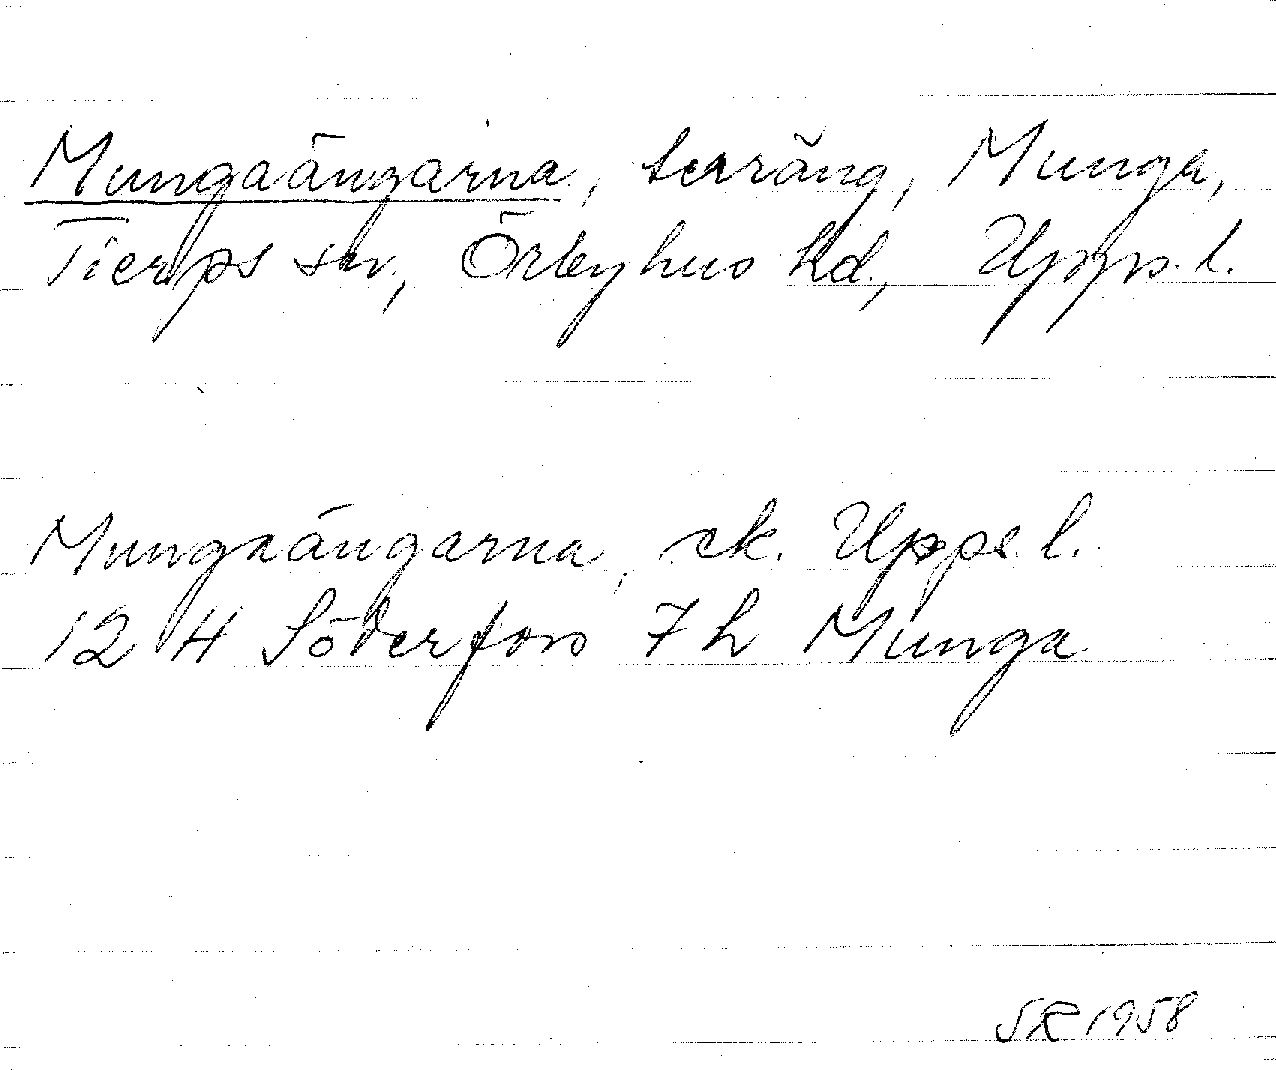 Mungaängarna, terräng, Munga,
Tierps sn, Örbyhus hd, Upps. l.
Mungaängarna, ek. Upps. l.
12 H Söderfors 7 h Munga
SR 1958